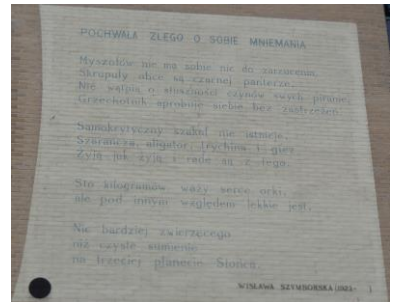 POCHWAŁA ZŁEGO O SOBIE MNIEMANIA
Myszołów nie ma sobie nic do zarzucenia.
Skrupuły obce są czarnej panterze.
Nie wątpią o słuszności czynów swych piranie.
Grzechotnik aprobuje siebie bez zastrzeżeń.
Samokrytyczny szakal nie istnieje.
Szarańcza, aligator, trychina i giez
żyją jak żyją i rade są z tego.
Sto kilogramów waży serce orki,
ale pod innym względem lekkie jest.
Nic bardziej zwierzęcego
niż czyste sumienie
na trzeciej planecie Słońca.
WISŁAWA SZYMBORSKA (1923- )